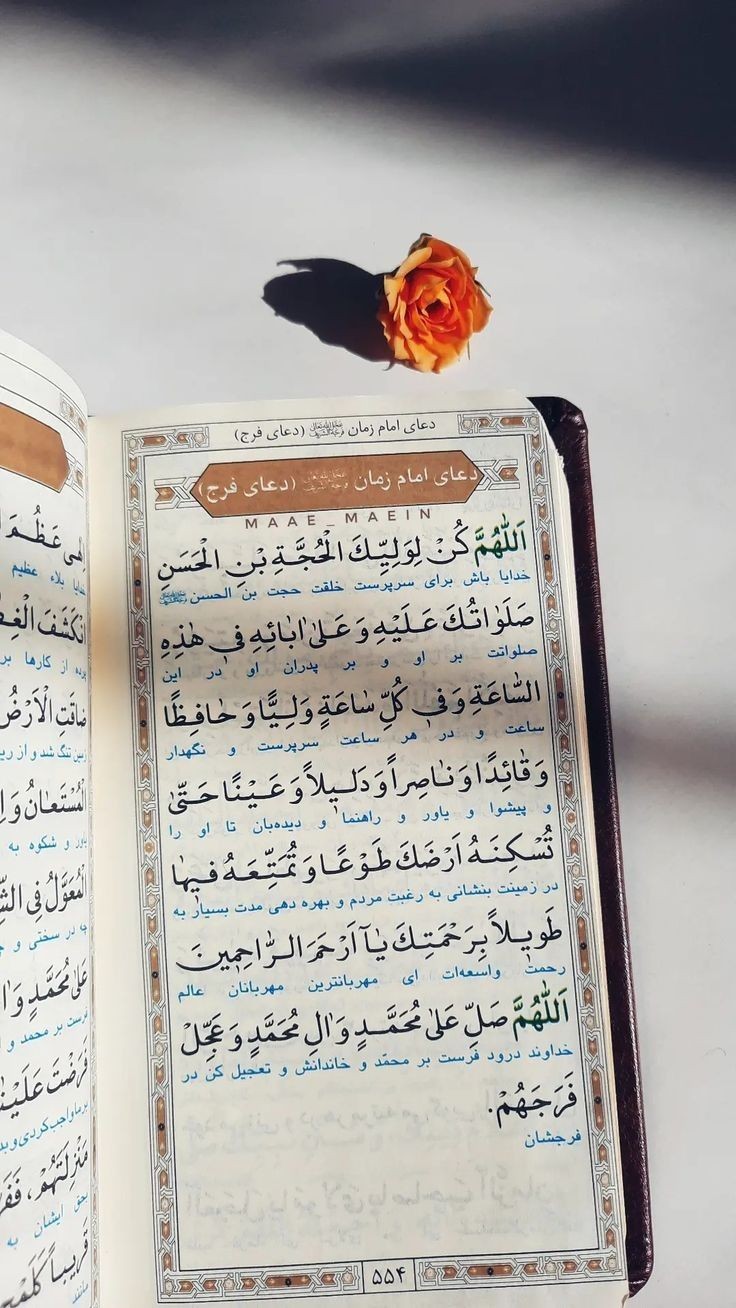 دعای امام زمان (دعای فرج)
دعای امام زمان (دعای فرج)
MAAE_MAEIN
اَللّٰهُمَّ كُنْ لِوَلِيِّكَ الْحُجَّةِ بْنِ الْحَسَنِ
خدایا باش برای سرپرست خلقت حجت بن الحسن
صَلَوٰاتُكَ عَلَيْهِ وَ عَلىٰ اٰبٰائِهِ فى هٰذِهِ
صلواتت بر او و بر پدران او در این
السّٰاعَةِ وَ فى كُلِّ سٰاعَةٍ وَلِيًّا وَ حٰافِظًا
ساعت و در هر ساعت سرپرست و نگهدار
وَ قٰائِدًا وَ نٰاصِراً وَ دَلـيلاً وَ عَيْنًا حَتّىٰ
و پیشوا و یاور و راهنما و دیده‌بان تا او را
تُسْكِنَهُ اَرْضَكَ طَوْعًا وَ تُمَتِّعَهُ فيهٰا
در زمینت بنشانی به رغبت مردم و بهره دهی مدت بسیار به
طَويلاً بِرَحْمَتِكَ يٰا اَرْحَمَ الرّٰاحِمينَ
رحمت واسعه‌ات ای مهربانترین مهربانان عالم
اَللّٰهُمَّ صَلِّ عَلىٰ مُحَمَّدٍ وَ اٰلِ مُحَمَّدٍ وَ عَجِّلْ
خداوند درود فرست بر محمّد و خاندانش و تعجیل کن در
فَرَجَهُمْ.
فرجشان
۵۵۴
عَظُمَ
خدایا بلاء عظیم
انْكَشَفَ
پرده از کارها بر
ضاقَتِ الْاَرْضُ
زمین تنگ شد و از
الْمُسْتَعٰانُ وَ
یاور و شکوه به
الْمُعَوَّلُ فِى
در سختی و
عَلىٰ مُحَمَّدٍ وَ
فرست بر محمد و
فَرَضْتَ عَلَيْنٰا
بر ما واجب کردی
مَنْزِلَتَهُمْ،
بحق ایشان به
قَريباً كَلَمْحِ
مانند